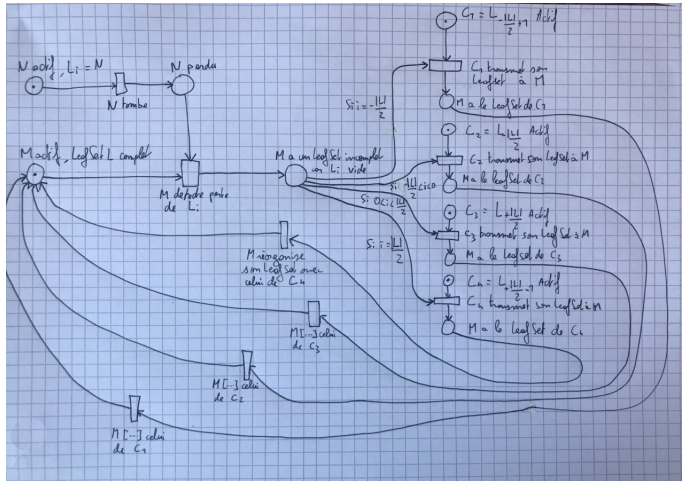 N actif, Li = N
N tombe
N perdu
M actif, Leaf Set L complet
M détecte perte
de Li
M a un Leaf Set incomplet
un Li vide
Si i = -|L|/2
Si -|L|/2 < i < 0
Si 0 < i < |L|/2
Si i = |L|/2
C1 = L -|L|/2+1 Actif
C1 transmet son
leafset à M
M a le leafset de C1
C2 = L -|L|/2 Actif
C2 transmet son leafset à M
M a le leafset de C2
C3 = L +|L|/2 Actif
C3 transmet son leafset à M
M a le leafset de C3
C4 = L +|L|/2-1 Actif
C4 transmet son leafset à M
M a le leafset de C4
M réorganise
son leafset avec
celui de C4
M [...] celui
de C3
M [...] celui
de C2
M [...] celui
de C1